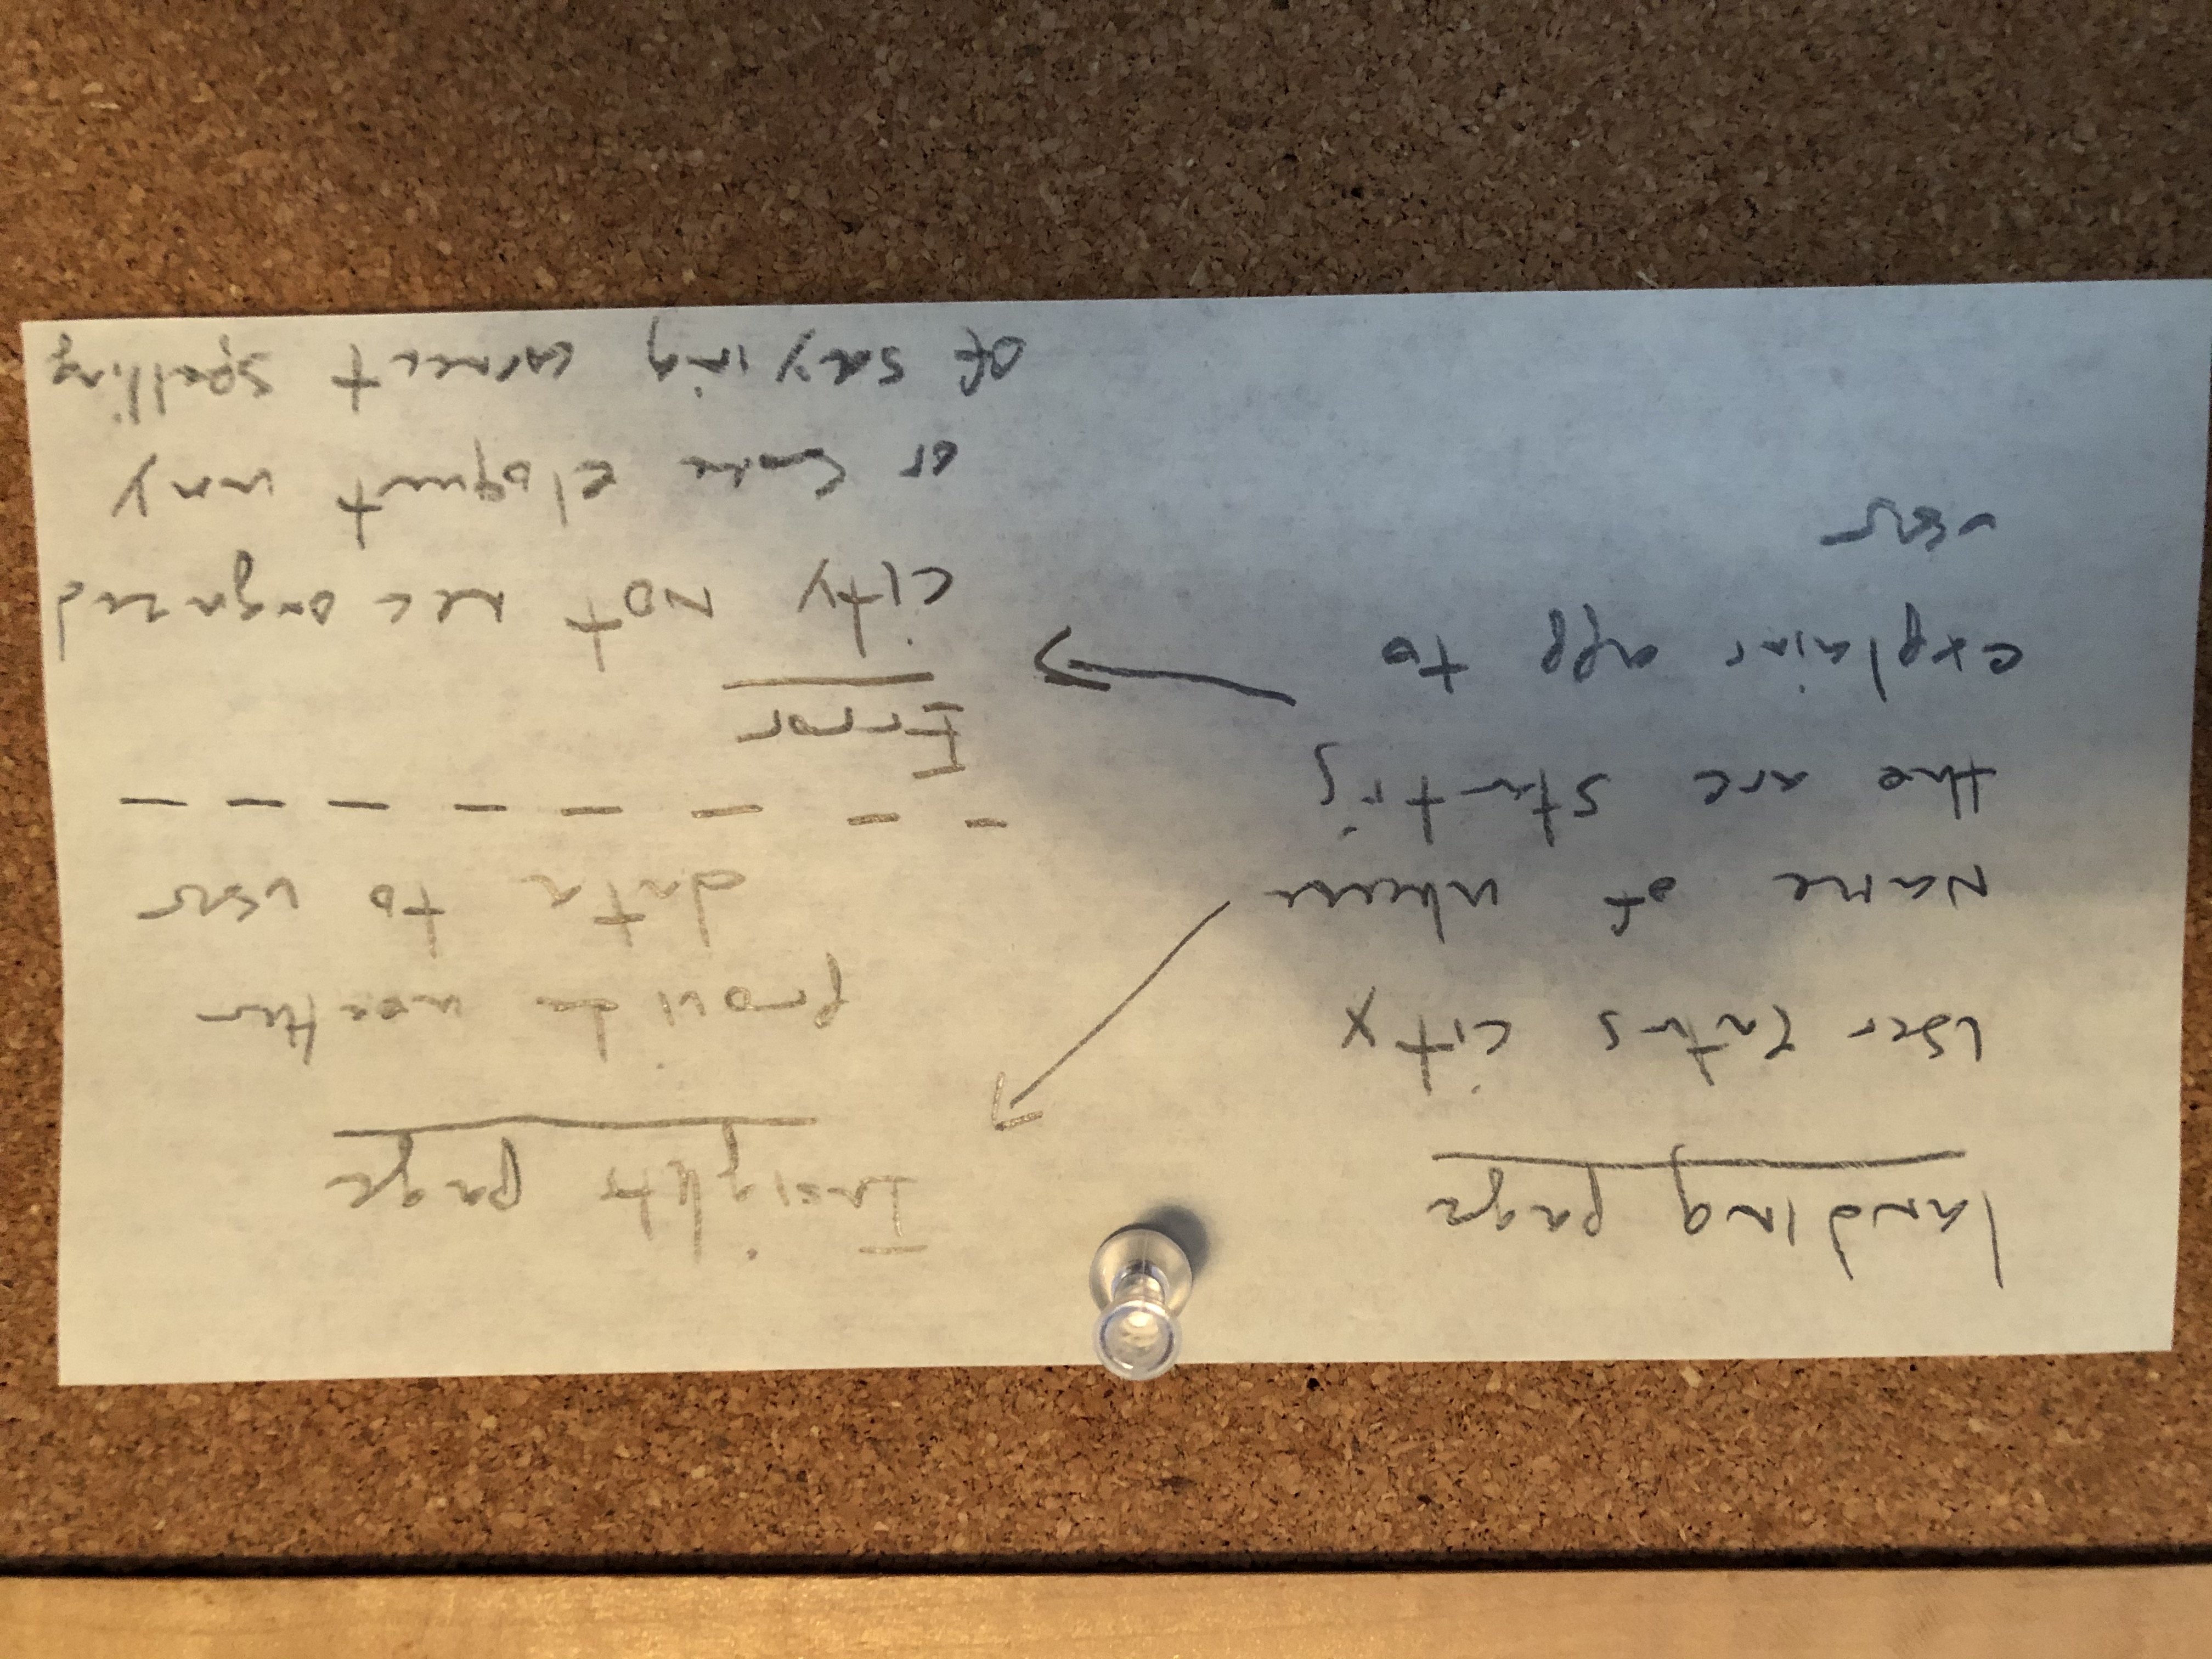 landing page
User enters city
Name of where
the are starting
explains app to
user
Insights page
provide weather
data to user
Error
city not recorgnized
or some eloquent way
of saying correct spelling